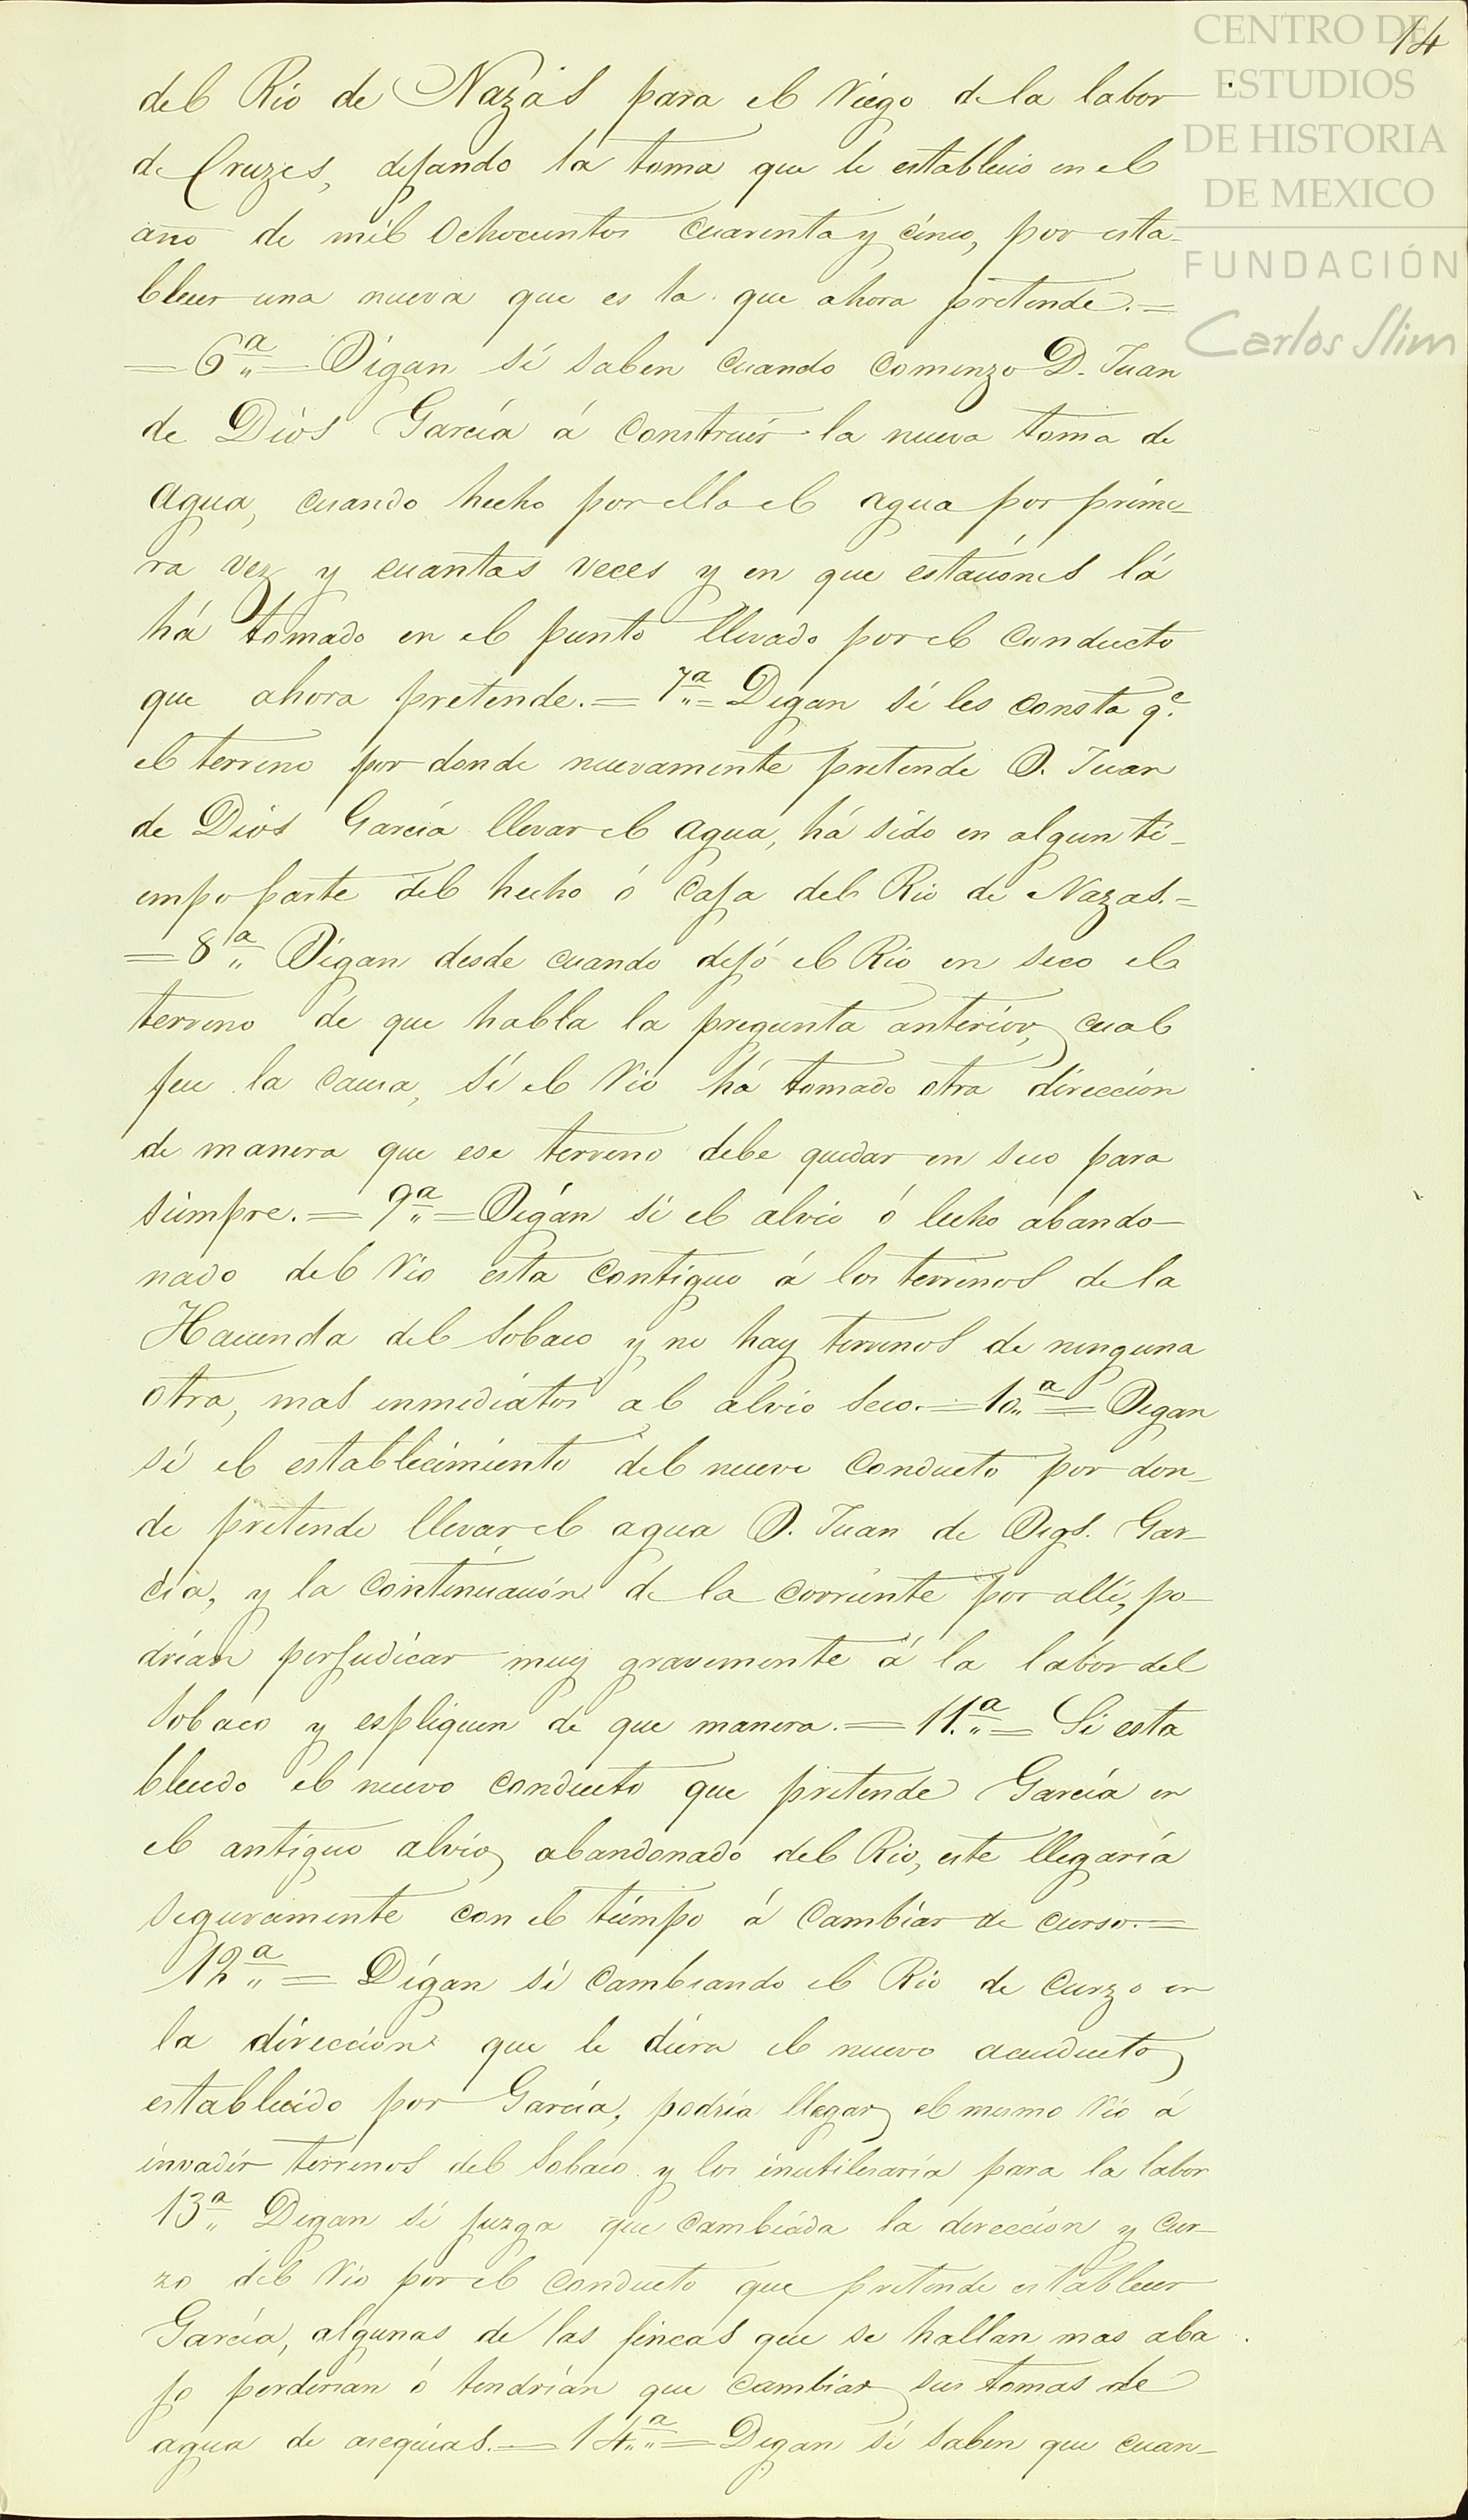 14
CENTRO DE
ESTUDIOS
DE HISTORIA
DE MEXICO
FUNDACIÓN
Carlos Slim
del Rio de Nazas para el riego de la labor
de Cruzes, dejando la toma que le establecio en el
año de mil ochocientos cuarenta y cinco, por esta-
blecer una nueva que es la que ahora pretende.=
=6.ª= Digan si saben cuando comenzo D. Juan
de Dios García á construir la nueva toma de
agua, cuando hecho por ella el agua por prime-
ra vez y cuantas veces y en que estaciones lá
há tomado en el punto llevado por el conducto
que ahora pretende.= 7.ª= Digan si les consta q.e
el terreno por donde nuevamente pretende D. Juan
de Dios García llevar el agua, há sido en algun ti-
empo parte del hecho ó caja del Rio de Nazas.=
=8.ª Digan desde cuando dejó el Rio en seco el
terreno de que habla la pregunta anterior, cual
fue la causa, si el rio há tomado otra dirección
de manera que ese terreno debe quedar en seco para
siempre.= 9.ª= Digan si el alvio ó lecho abando-
nado del rio esta contiguo á los terrenos de la
Hacienda del Sobaco y no hay terrenos de ninguna
otra, mas inmediatos al alvio seco.= 10.ª= Digan
si el establecimiento del nuevo conducto por don-
de pretende llevar el agua D. Juan de Dios. Gar-
cia, y la continuación de la corriente por allí, po-
drian perjudicar muy gravemente á la labor del
Sobaco y espliquen de que manera.= 11.ª= Si esta
blecido el nuevo conducto que pretende García en
el antiguo alvio abandonado del Rio, este llegaría
seguramente con el tiempo á cambiar de curso.=
12.ª= Digan si cambiando el Rio de curzo en
la dirección que le diera el nuevo acueducto
establecido por García, podria llegar el mismo rio á
invadir terrenos del Sobaco y los inutilisaría para la labor
13.ª Digan si juzga que cambiada la dirección y cur-
zo del rio por el conducto que pretende establecer
García, algunas de las fincas que se hallan mas aba
jo perderian ó tendrían que cambiar sus tomas de
agua de asequias.= 14.ª= Digan si saben que cuan-